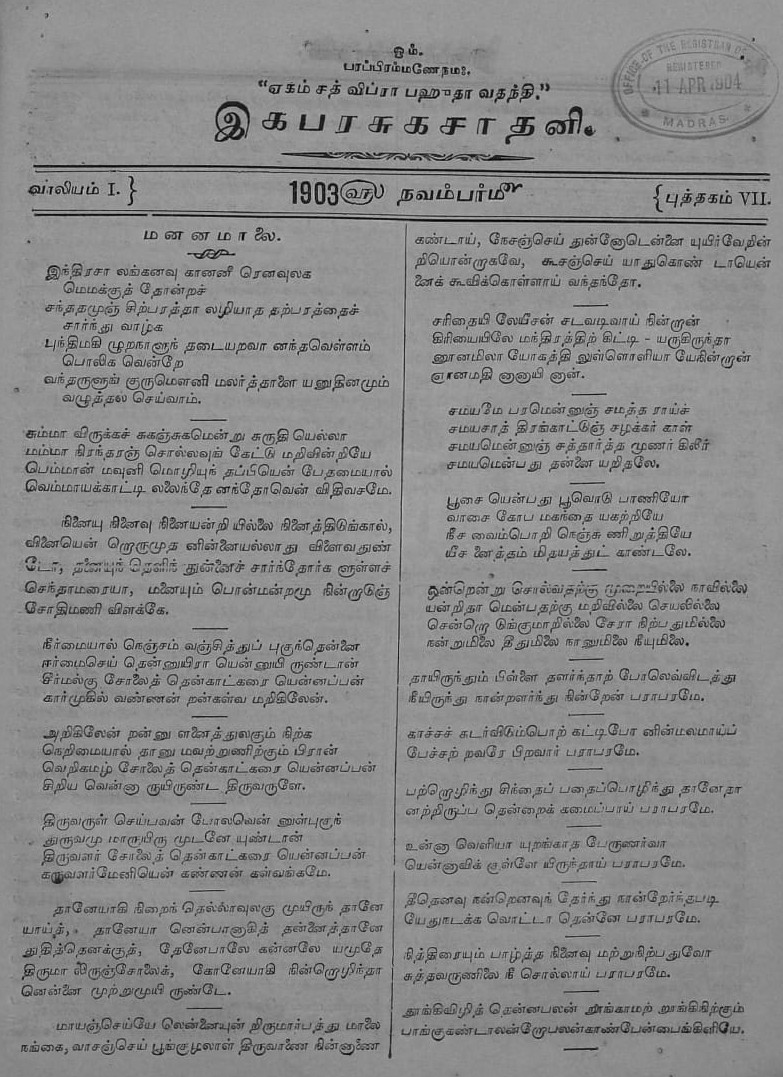 ஓம்.
பரப்பிரம்மணேநமஃ.
“ஏகம் சத் விப்ரா பஹுதா வதந்தி.”
இகபரசுகசாதனி.
OFFICE OF THE REGISTRAR OF
REGISTERED
11 APR 1904
MADRAS
வாலியம் I. }
1903௵ நவம்பர்௴
{ புத்தகம் VII.
மனனமாலை.
இந்திரசா லங்கனவு கானனீ ரெனவுலக
மெமக்குத் தோன்றச்
சந்ததமுஞ் சிற்பரத்தா லழியாத தற்பரத்தைச்
சார்ந்து வாழ்க
புந்திமகி முறநாளுந் தடையறவா னந்தவெள்ளம்
பொலிக வென்றே
வந்தருளுங் குருமௌனி மலர்த்தாளை யனுதினமும்
வழுத்தல் செய்வாம்.
சும்மா விருக்கச் சுகஞ்சுகமென்று சுருதி யெல்லா
மம்மா நிரந்தரஞ் சொல்லவுங் கேட்டு மறிவின்றியே
பெம்மான் மவுனி மொழியுந் தப்பியென் பேதமையால்
வெம்மாயக்காட்டி லலைந்தே னந்தோவென் விதிவசமே.
நினையு நினைவு நினையன்றி யில்லை நினைத்திடுங்கால்,
வினையென் றொருமுத னின்னையல்லாது விளைவதுண்
டோ, தனையுந் தெளிந் துன்னைச் சார்ந்தோர்க ளுள்ளச்
செந்தாமரையா, மனையும் பொன்மன்றமு நின்றாடுஞ்
சோதிமணி விளக்கே.
நீர்மையால் நெஞ்சம் வஞ்சித்துப் புகுந்தென்னை
ஈர்மைசெய் தென்னுயிரா யென்னுயி ருண்டான்
சீர்மல்கு சோலைத் தென்காட்கரை யென்னப்பன்
கார்முகில் வண்ணன் றன்கள்வ மறிகிலேன்.
அறிகிலேன் றன்னு ளனைத்துலகும் நிற்க
நெறிமையால் தானு மவற்றுணிற்கும் பிரான்
வெறிகமழ் சோலைத் தென்காட்கரை யென்னப்பன்
சிறிய வென்னா ருயிருண்ட திருவருளே.
திருவருள் செய்பவன் போலவென் னுள்புகுந்
துருவமு மாருயிரு முடனே யுண்டான்
திருவளர் சோலைத் தென்காட்கரை யென்னப்பன்
கருவளர்மேனியென் கண்ணன் கள்வங்கமே.
தானேயாகி நிறைந் தெல்லாவுலகு முயிருந் தானே
யாய்த், தானேயா னென்பானாகித் தன்னைத்தானே
துதித்தெனக்குத், தேனேபாலே கன்னலே யமுதே
திருமா லிருஞ்சோலைக், கோனேயாகி நின்றொழிந்தா
னென்னை முற்றுமுயி ருண்டே.
மாயஞ்செய்யே லென்னையுன் றிருமார்பத்து மாலை
நங்கை, வாசஞ்செய் பூங்குழலாள் திருவாணை நின்னாணை
கண்டாய், நேசஞ்செய் துன்னோடென்னை யுயிர்வேறின்
றியொன்றாகவே, கூசஞ்செய் யாதுகொண் டாயென்
னைக் கூவிக்கொள்ளாய் வந்தந்தோ.
சரிதையி லேயீசன் சடவடிவாய் நின்றான்
கிரியையிலே மந்திரத்திற் கிட்டி - யருகிருந்தா
னூனமிலா யோகத்தி லுள்ளொளியா யேநின்றான்
ஞானமதி னானாயி னான்.
சமயமே பரமென்னுஞ் சமத்த ராய்ச்
சமயசாத் திரங்காட்டுஞ் சழக்கர் காள்
சமயமென்னுஞ் சத்தார்த்த மூணர் கிலீர்
சமயமென்பது தன்னை யறிதலே.
பூசை யென்பது பூவொடு பாணியோ
வாசை கோப மகந்தை யகற்றியே
நீச வைம்பொறி நெஞ்சு ணிறுத்தியே
யீச னைத்தம் மிதயத்துட் காண்டலே.
ஒன்றென்று சொல்வதற்கு முறையில்லை நாவில்லை
யன்றிதா மென்பதற்கு மறிவில்லை செயலில்லை
சென்றொ டுங்குமாறில்லை சேரா நிற்பதுமில்லை
நன்றுமிலை தீதுமிலை நானுமிலை நீயுமிலை.
தாயிருந்தும் பிள்ளை தளர்ந்தாற் போலெவ்விடத்து
நீயிருந்து நான்றளர்ந்து நின்றேன் பராபரமே.
காச்சச் சுடர்விடும்பொற் கட்டிபோ னின்மலமாய்ப்
பேச்சற் றவரே பிறவார் பராபரமே.
பற்றொழிந்து சிந்தைப் பதைப்பொழிந்து தானேதா
னற்றிருப்ப தென்றைக் கமைப்பாய் பராபரமே.
உன்னா வெளியா யுறங்காத பேருணர்வா
யென்னாவிக் குள்ளே யிருந்தாய் பராபரமே.
தீதெனவு நன்றெனவுந் தேர்ந்து நான்றேர்ந்தபடி
யேதுநடக்க வொட்டா தென்னே பராபரமே.
நித்திரையும் பாழ்த்த நினைவு மற்றுநிற்பதுவோ
சுத்தவருணிலை நீ சொல்லாய் பராபரமே.
தூங்கிவிழித் தென்னபலன் றூங்காமற் றூங்கிநிற்கும்
பாங்குகண்டாலன்றோபலன்காண்பேன்பைங்கிளியே.